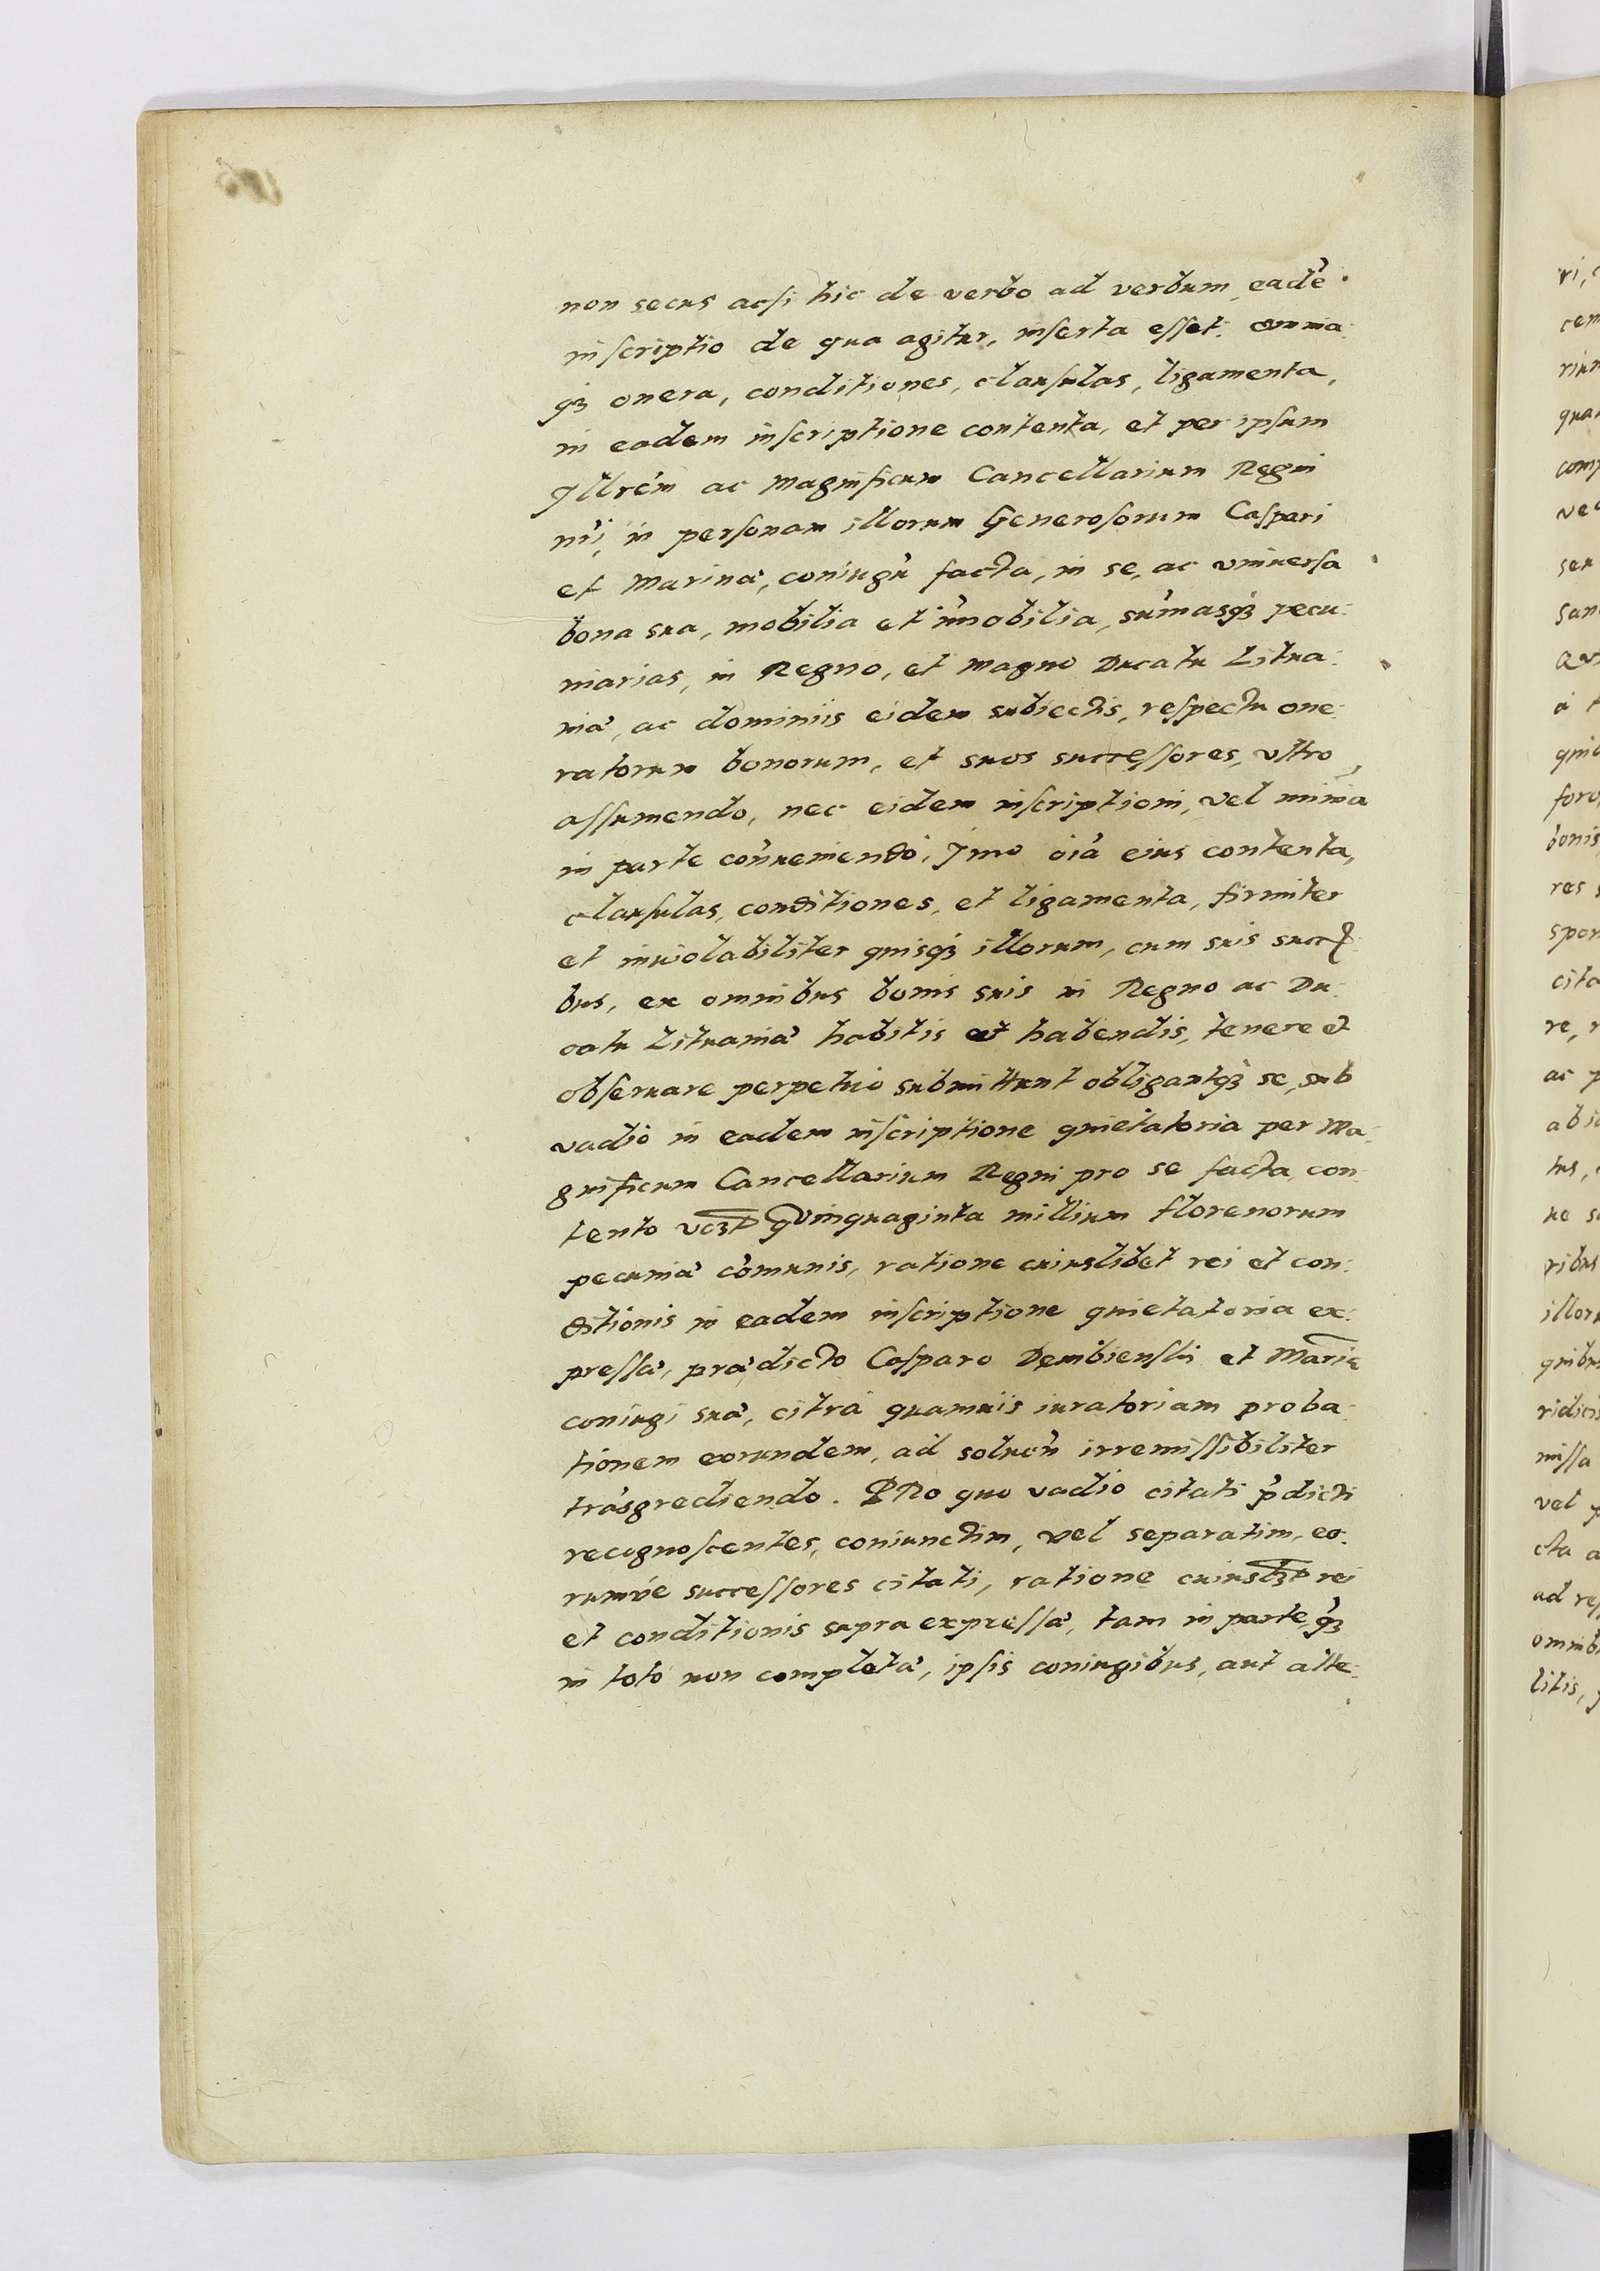 non secus acsi hic de verbo ad verbum eadē
inscriptio de qua agitur, inserta esset. omnia
qȝ onera, conditiones, clausulas, ligamenta,
in eadem inscriptione contenta, et per ipsum
Illrēm ac Magnificum Cancellarium Regni
nri, in personam illorum Generosorum Caspari
et Marinæ, coniugū facta, in se, ac vniuersa
bona sua, mobilia et īmobilia, sūmasqȝ pecu:
niarias, in Regno, et Magno Ducatu Litua:
niæ, ac dominiis eidem subiectis, respectu one:
ratorum bonorum, et suos successores, vltro
assumendo, nec eidem inscriptioni, vel minia
in parte cōnueniendo, Imo oīa eius contenta,
clausulas, conditiones, et ligamenta, firmiter
et inuiolabiliter quisqȝ illorum, cum suis succ
bus, ex omnibus bonis suis in Regno ac Du:
catu Lituaniæ habitis et habendis, tenere et
obseruare perpetuo submittunt obligantqȝ se, sub
vadio in eadem inscriptione quietatoria per Ma:
gnificum Cancellarium Regni pro se facta, con
tento vcȝt quinquaginta millium florenorum
pecuniæ cōmunis, ratione cuiuslibet rei et con:
ditionis in eadem inscriptione quietatoria ex:
pressæ, prædicto Casparo Dembienski et Marie
coniugi suæ, citra quamuis iuratoriam proba:
tionem eorundem, ad soluen irremissibiliter
trāsgrediendo. PRo quo vadio citati p̄dicti
recognoscentes, coniunctim, vel separatim, eo:
rumve successores citati, ratione cuiuslȝt rei
et conditionis supra expressæ, tam in parte, qȝ
in toto non completæ, ipsis coniugibus, aut alte: